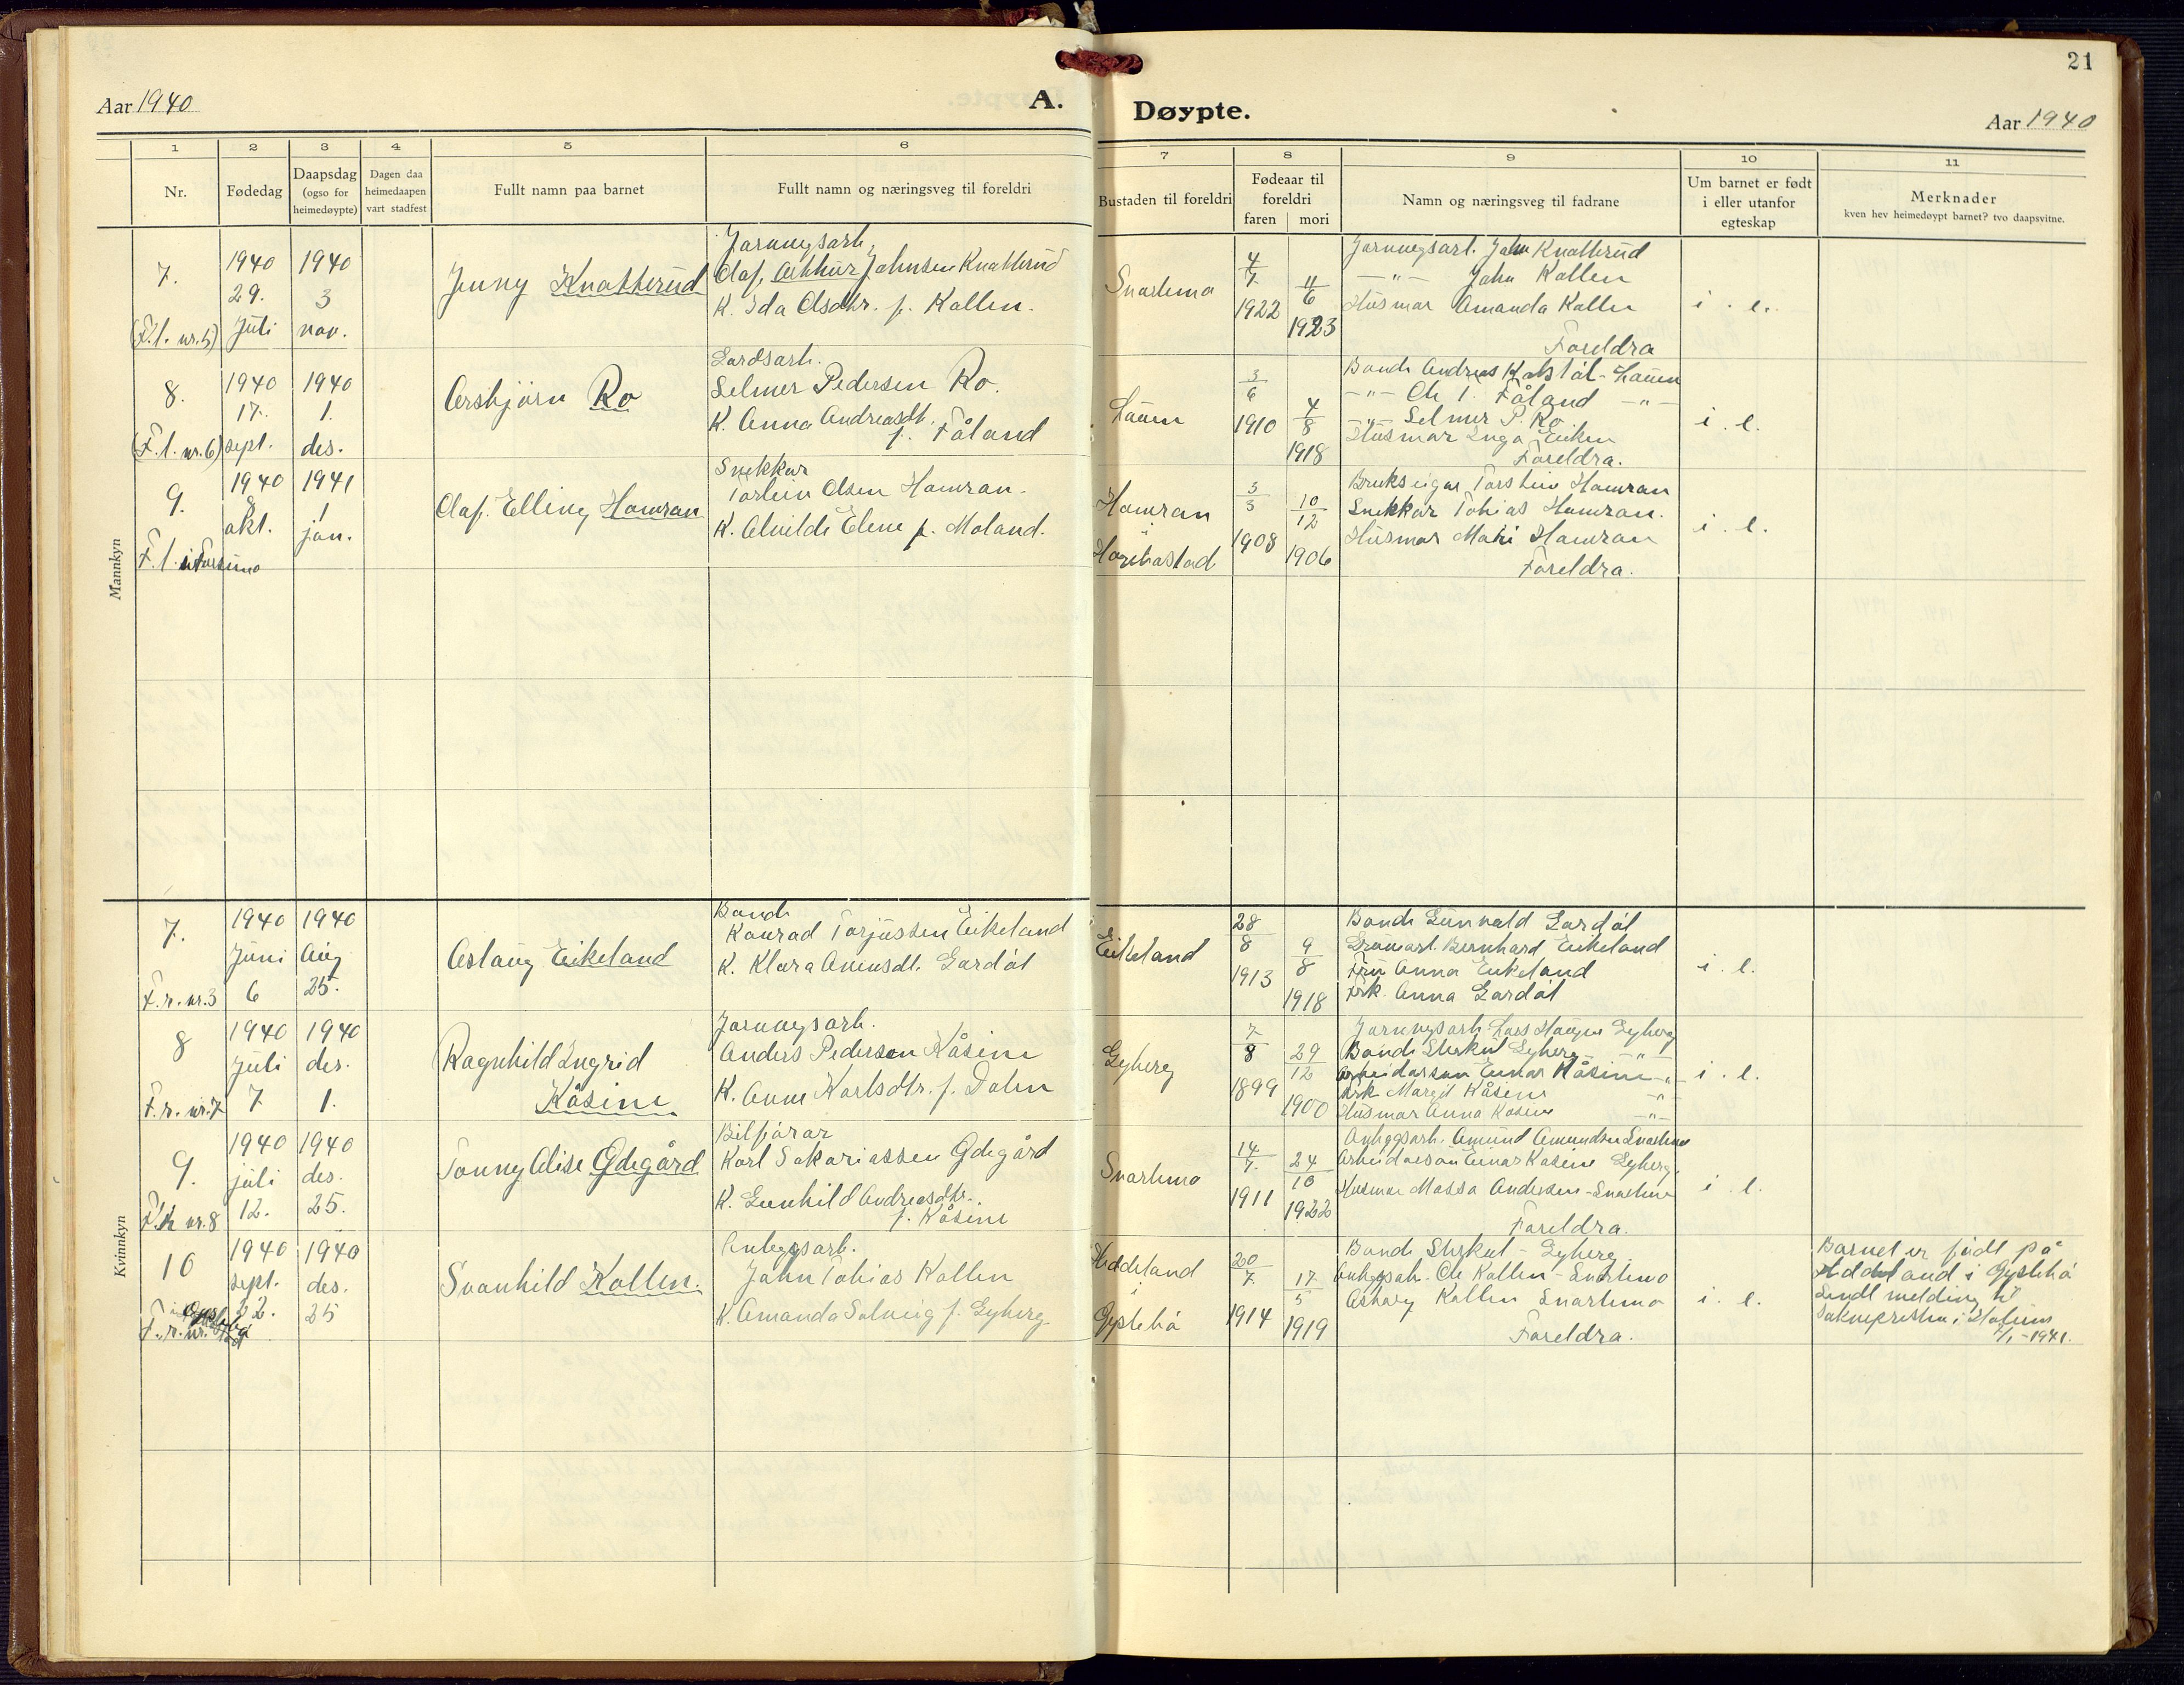 21
Aar 1940
A.
Døypte.
Aar 1940
1 2 3 4 5 6 7 8 9 10 11
Nr.
Fødedag
Daapsdag
(ogso for
heimedøypte)
Dagen daa
heimedaapen
vart stadfest
Fullt namn paa barnet
Fullt namn og næringsveg til foreldri
Bustaden til foreldri
Fødeaar til
foreldri
faren mori
Namn og næringsveg til fadrane
Um barnet er født
i eller utanfor
egteskap
Merknader
kven hev heimedøypt barnet? tvo daapsvitne.
Mannkyn
7.
(F.l. nr. 5)
1940
29.
juli
1940
3
nov.
Jenny Knatterud
Jarnvegsarb.
Olaf Arthur Johnsen Knatterud
K. Ida Olsdtr. f. Kollen.
Snartemo
4/7
1922
11/6
1923
Jarnvegsarb. John Knatterud
—"— John Kollen
Husmor Amanda Kollen
Foreldra
i. e.
8.
(F.l. nr. 6)
1940
17.
sept.
1940
1.
des.
Asbjørn Ro
Gardsarb.
Selmer Pedersen Ro.
K. Anna Andreasdt.
f. Fåland
Lauen
3/6
1910
4/8
1918
Bonde Andreas
—"— Fåland —"—
—"— Selmer P. Ro
Husmor Inga Eiken
Foreldra.
i. e.
9.
F. l.
1940
8
okt.
1941
1
jan.
Olaf Elling Homran
Snekkar
Torleiv Olsen Homran.
K. Alvilde Elene f. Moland.
Homran
i
Hægebostad
3/3
1908
10/12
1906
Brukseigar Torstein Homran
Snekkar Tobias Homran.
Husmor Homran
Foreldra.
i. e.
Kvinnkyn
7.
F. r. nr. 3
1940
Juni
6
1940
Aug
25.
Aslaug Eikeland
Bonde
Konrad Torjussen Eikeland
K. Klara Amundsdt. Gardöl
Eikeland
28/8
1913
9/8
1918
Bonde Gunvald Gardöl
Bernhard Eikeland
Fru Anna Eikeland
Frk. Anna Gardöl
i. e.
8
F. r. nr. 7
1940
Juli
7
1940
des.
1.
Ragnhild Ingrid
Kåsine
Jarnvegsarb.
Anders Pedersen Kåsine
K. Anne Karlsdtr. f. Dalen
Gyberg
7/8
1899
29/12
1900
Jarnvegsarb. Lars Haugen Gyberg
Bonde Gyberg —"—
Arbeidarson Einar Kåsine —"—
Frk Margit Kåsine —"—
Husmor Anna Kåsine —"—
i. e.
9.
F. r. nr. 8
1940
juli
12.
1940
des.
25.
Tonny Alise Ødegård
Bilførar
Karl Sakariassen Ødegård
K. Gunhild Andreasdtr.
f. Kåsine
Snartemo
14/7
1911
24/10
1922
Anleggsarb. Amund Amundsen Snartemo
Arbeidarson Einar Kåsine Gyberg.
Husmor Andersen - Snartemo
Foreldra.
i. e.
10
F. r. nr.
1940
sept.
22.
1940
des.
25
Svanhild Kollen.
Anleggsarb.
John Tobias Kollen
K. Amanda Solveig f. Gyberg.
Heddeland
i
Øyslebø
20/7
1914
17/5
1919
Bonde - Gyberg.
Anleggsarb. Ole Kollen - Snartemo
Kollen Snartemo
Foreldra.
i. e.
Barnet er födt på
Heddeland i Øyslebö
Sendt melding til
soknepresten i Holum
1/1 - 1941.